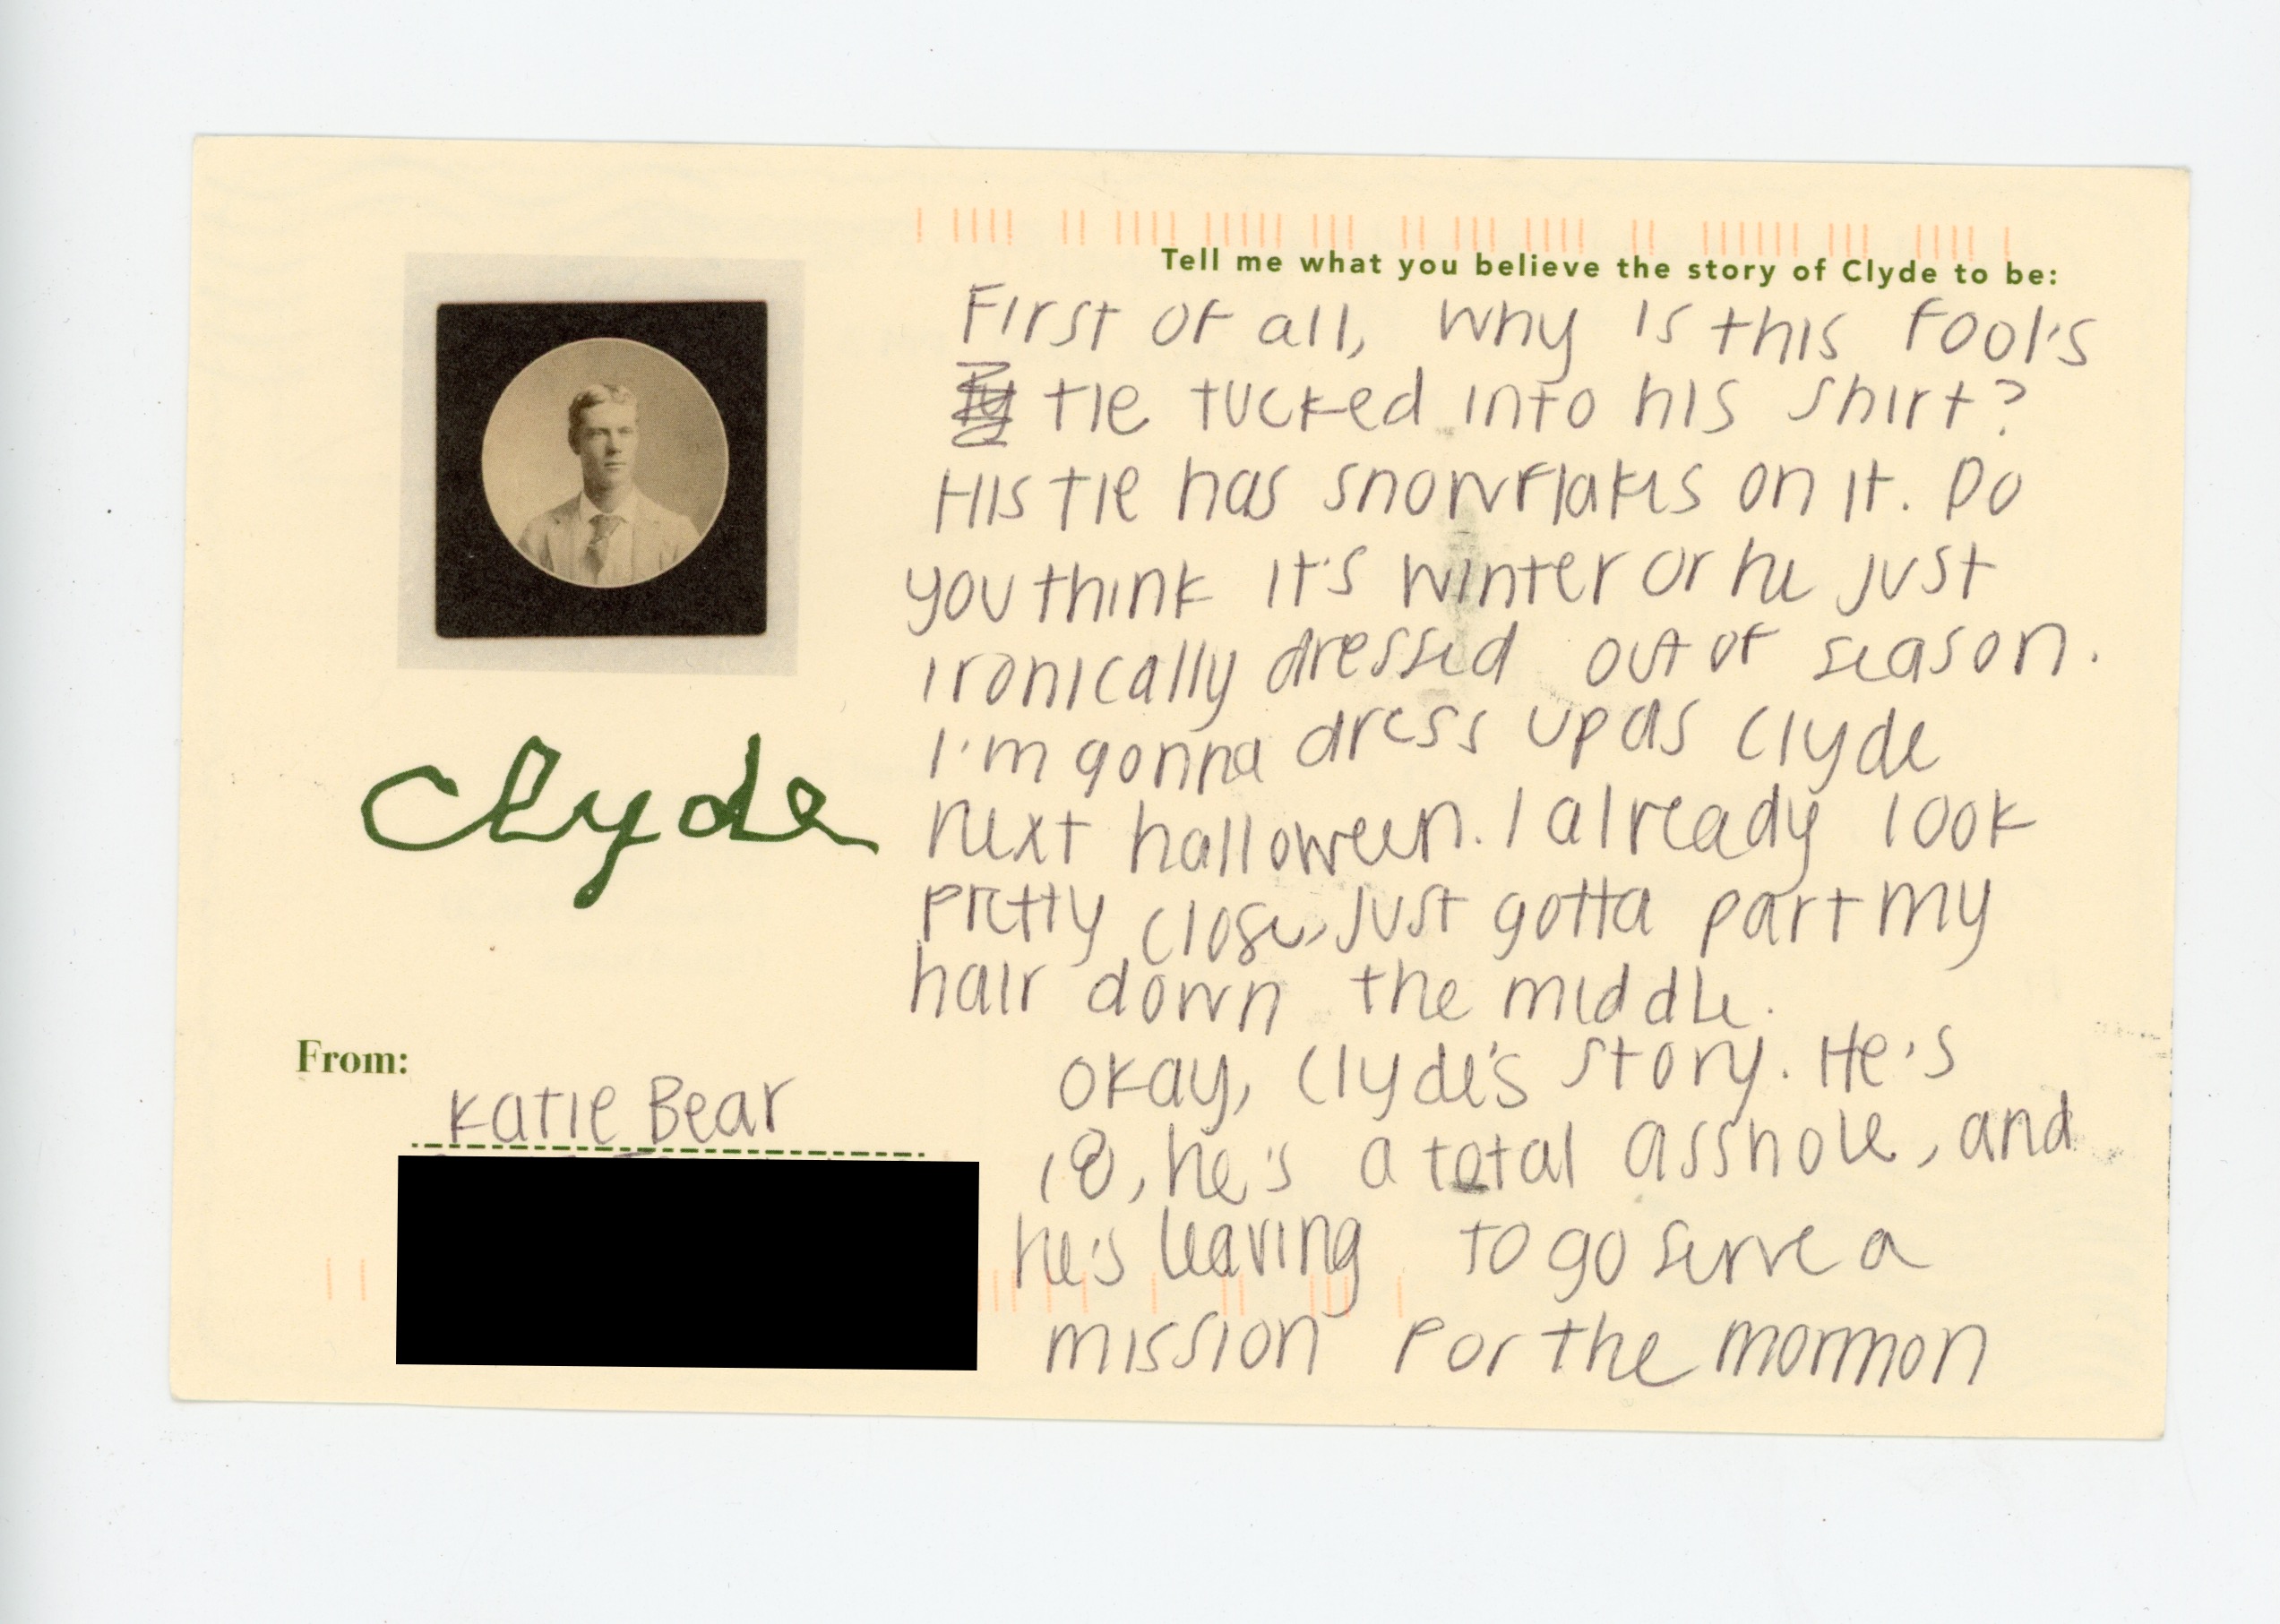 Tell me what you believe the story of Clyde to be:
First of all, why is this fool's
tie tucked into his shirt?
His tie has snowflakes on it. Do
you think it's winter or he just
ironically dressed out of season.
I'm gonna dress up as Clyde
next halloween. I already look
pretty close, just gotta part my
hair down the middle.
Okay, Clyde's story. He's
18, he's a total asshole, and
he's leaving to go serve a
mission for the mormon
Clyde
From:
Katie Bear